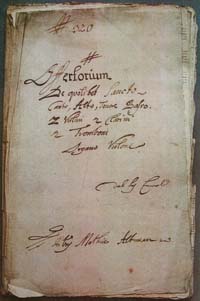 # 520
Offertorium
De quolibet Sancto
Canto, Alto, Tenore Basso.
2 Violin 2 Clarin
2 Tromboni
Organo Violone
Del Sig
Mathia